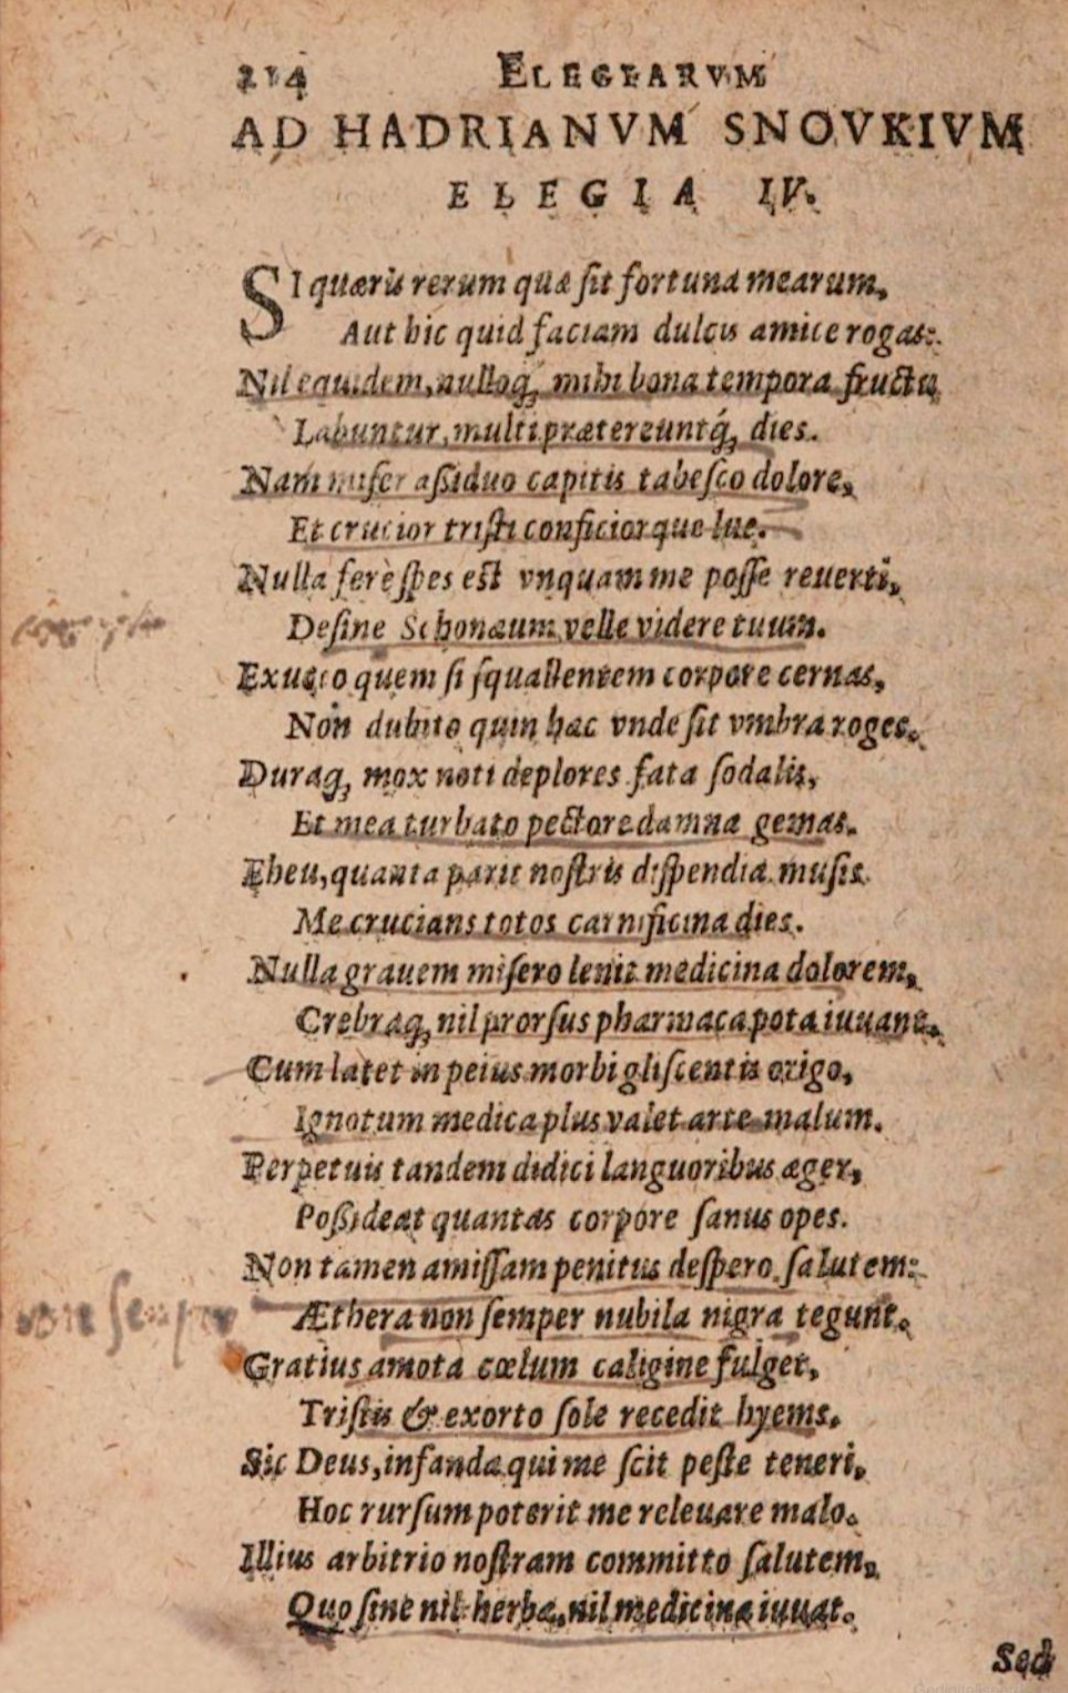 214 ELEGIARVM
AD HADRIANVM SNOVKIVM
ELEGIA IV.
SI quæris rerum quæ ſit fortuna mearum,
Aut hic quid faciam dulcis amice rogas:
Nil equidem, nulloq; mihi bona tempora fructu
Labuntur, multi prætereuntq́; dies.
Nam miſer aßiduo capitis tabeſco dolore,
Et crucior triſti conficiorque lue.
Nulla ferè ſpes eſt vnquam me poſſe reuerti,
Deſine Schonæum velle videre tuum.
Exucco quem ſi ſquallentem corpore cernas,
Non dubito quin hæc vnde ſit vmbra roges.
Duraq; mox noti deplores fata ſodalis,
Et mea turbato pectore damna gemas.
Eheu, quanta parit noſtris diſpendia muſis
Me crucians totos carnificina dies.
Nulla grauem miſero lenit medicina dolorem,
Crebraq; nil prorſus pharmaca pota iuuant.
Cum latet in peius morbi gliſcentis origo,
Ignotum medica plus valet arte malum.
Perpetuis tandem didici languoribus æger,
Poßideat quantas corpore ſanus opes.
Non tamen amiſſam penitus deſpero ſalutem:
non ſemper
Æthera non ſemper nubila nigra tegunt.
Gratius amota cœlum caligine fulget,
Triſtis & exorto ſole recedit hyems.
Sic Deus, infanda qui me ſcit peſte teneri,
Hoc rurſum poterit me releuare malo.
Illius arbitrio noſtram committo ſalutem,
Quo ſine nil herbæ, nil medicina iuuat.
Sed